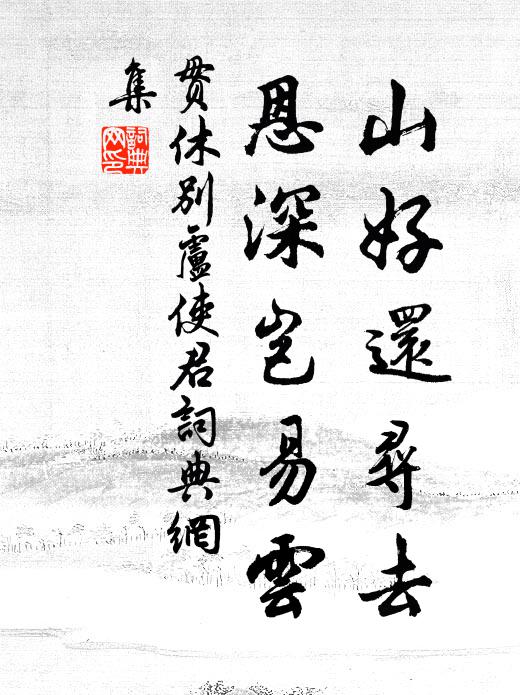 山好還尋去
恩深豈易雲
貫休別盧使君詞典網
集
詞典
网印